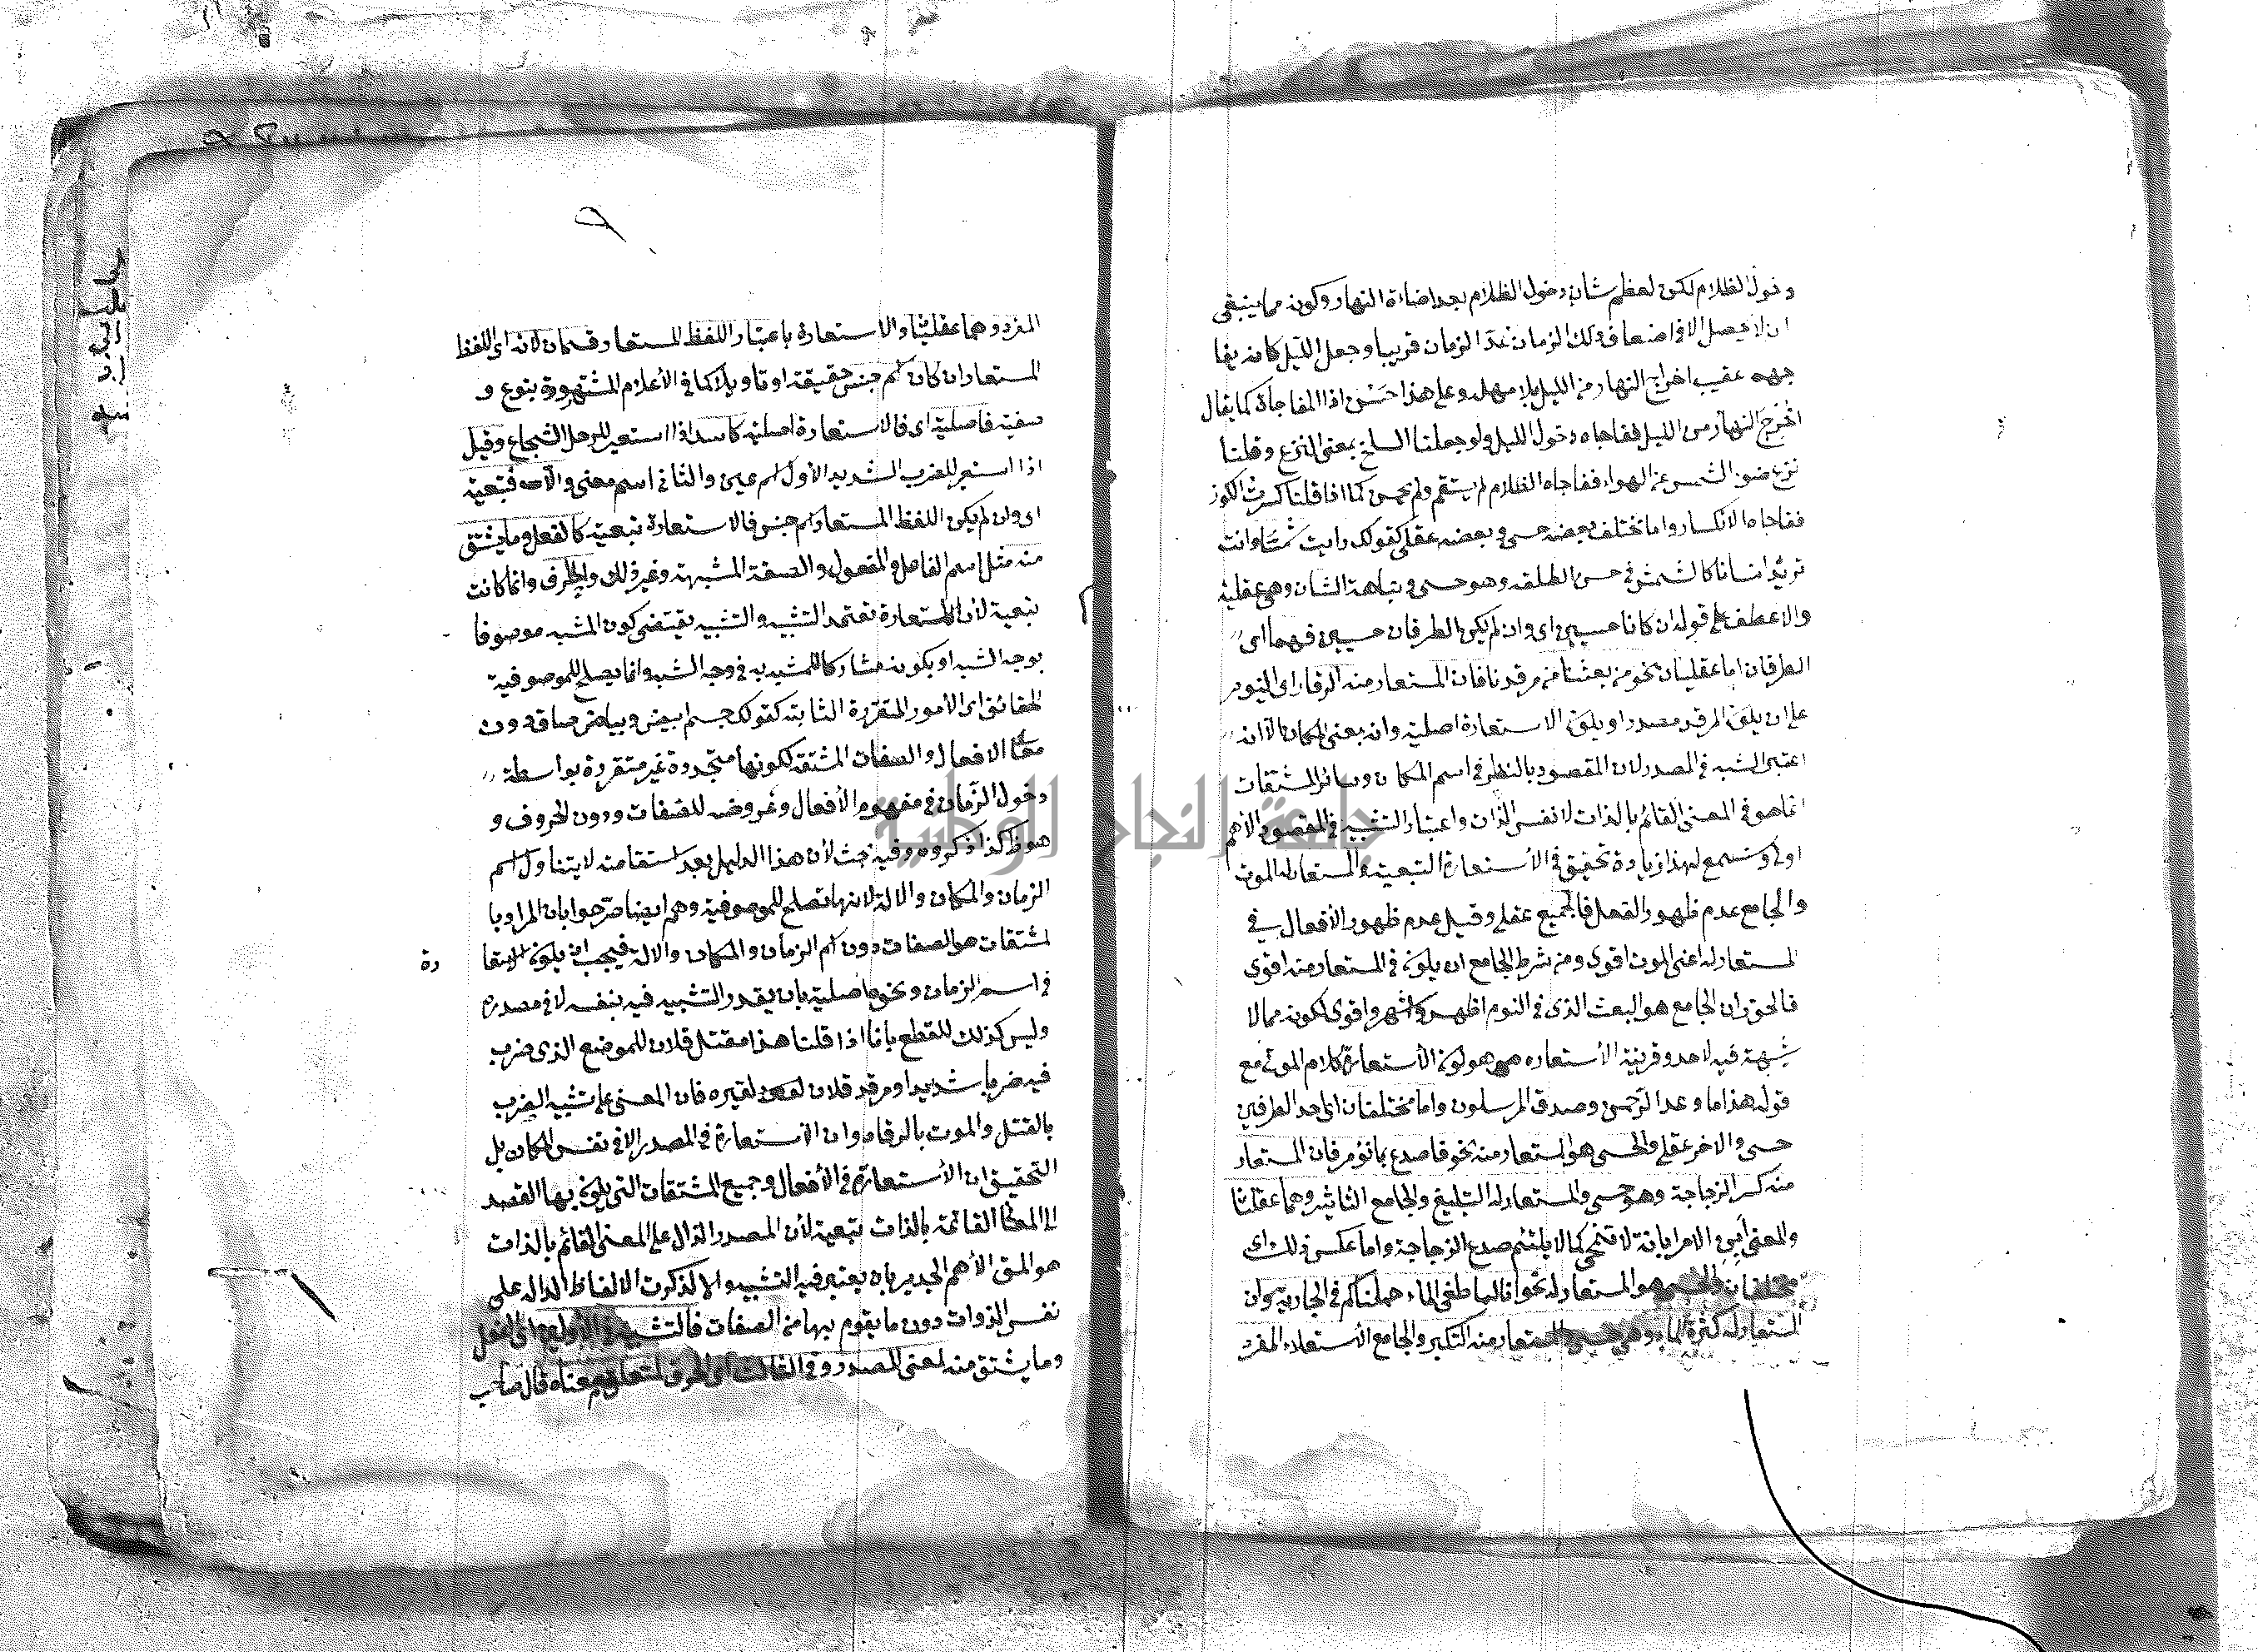 دخول الظلام لكن لعظم شان دخول الظلام بعد اضاءة النهار وكونه مما ينبغى
ان لا يحصل الا فى اضعاف ذلك الزمان عدّ الزمان قريبا وجعل الليل كانه يفا
جهم عقيب اخراج النهار من الليل بلا مهلة وعلى هذا حَسُن اذا المفاجأة كما يقال
اُخرج النهار من الليل ففاجاه دخول الليل ولو جعلنا السلخ بمعنى النزع وقلنا
نزع ضوء الشمس عن الهواء ففاجاه الظلام لم يستقم ولم يحسن كما اذا قلنا كسرت الكوز
ففاجاه الانكسار واما مختلف بعضه حسى وبعضه عقلى كقولك رايت شمسًا وانت
تريد انسانا كالشمس فى حسن الطلعة وهو حسى ونباهة الشان وهى عقلية
والا عطف على قوله ان كانا حسيين اى وان لم يكن الطرفان حسيين فهما اى
الطرفان اما عقليان نحو من بعثنا من مرقدنا فان المستعار منه الرقاد اى النوم
على ان يكون المرقد مصدرا ويكون الاستعارة اصلية وانه بمعنى المكان الا انه
اعتبر الشبه فى المصدر لان المقصود بالنظر فى اسم المكان وسائر المشتقات
انما هو فى المعنى القائم بالذات لا نفس الذات واعتبار التشبيه فى المقصود الاهم
اولى وستسمع لهذا زيادة تحقيق فى الأستعارة التبعية والمستعار له الموت
والجامع عدم ظهور الفعل فالجميع عقلى وقيل عدم ظهور الأفعال فى
المستعار له اعنى الموت اقوى ومن شرط الجامع ان يكون فى المستعار منه اقوى
فالحق ان الجامع هو البعث الذى فى النوم اظهر واشهر واقوى لكونه مما لا
شبهة فيه لاحد وقرينة الأستعاره هو كون الأستعارة كلام الموتى مع
قوله هذا ما وعد الرحمن وصدق المرسلون واما مختلفان اى احد الطرفين
حسى والاخر عقلى والحسى هو المستعار منه نحو فاصدع بما تؤمر فان المستعار
منه كسر الزجاجة وهو حسى والمستعار له التبليغ والجامع التاثير وهما عقليان
والمعنى أبِن الامر ابانة لا تنمحى كما لا يلتئم صدع الزجاجة واما عكس ذلك اى
مختلفان والحسى هو المستعار له نحو انا لما طغى الماء حملناكم فى الجارية وان
المستعار له كثرة الماء وهى حسى المستعار منه التكبر والجامع الأستعلاء المفر
المفرد وهما عقليان والاستعارة باعتبار اللفظ المستعار قسمان لانه اى اللفظ
المستعار ان كان اسم جنس حقيقة او تاويلا كما فى الأعلام المشتهورة بنوع و
صفية فاصلية اى فالاستعارة اصلية كاسد اذا استعير للرجل الشجاع وقيل
اذا استعير للضرب الشديد الأول اسم عين والثانى اسم معنى والا فتبعية
اى وان لم يكن اللفظ المستعار اسم جنس فالاستعارة تبعية كالفعل وما يشتق
منه مثل اسم الفاعل والمفعول والصفة المشبهة وغير ذلك والحرف وانما كانت
تبعية لأن الاستعارة تعتمد التشبيه والتشبيه يقتضى كون المشبه موصوفا
بوجه الشبه او بكونه مشاركا للمشبه به فى وجه الشبه وانما يصلح للموصوفية
الحقائق اى الأمور المتقررة الثابتة كقولك جسم ابيض وبياض صاف دون
معانى الافعال والصفات المشتقة لكونها متجددة غير متقررة بواسطة
دخول الزّمان فى مفهوم الأفعال وعُروضه للصفات ودون الحروف و
هو ظ كذا ذكروه وفيه بحث لأن هذا الدليل بعد استقامته لا يتناول اسم
الزمان والمكان والالة لانها تصلح للموصوفية وهم ايضا صرّحوا بان المراد با
لمشتقات هو الصفات دون اسم الزمان والمكان والالة فيجب ان يكون الاستعا
رة
فى اسم الزمان ونحوه اصلية بان يقدر التشبيه فيه بنفسه لا فى مصدره
وليس كذلك للقطع بانا اذا قلنا هذا مقتل فلان للموضع الذى ضرب
فيه ضربا شديدا ومرقد فلان لقبره فان المعنى على تشبيه الضرب
بالقتل والموت بالرقاد وان الأستعارة فى المصدر لا فى نفس المكان بل
التحقيق ان الأستعارة فى الأفعال وجميع المشتقات التى يكون بها القصد
الى المعانى القائمة بالذات تبعية لأن المصدر الدّال على المعنى القائم بالذات
هو المق الأهم الجدير بان يعتبر فيه التشبيه والا لذكرت الالفاظ الداله على
نفس الذوات دون ما يقوم بها من الصفات فالتشبيه فى الأولين اى الفعل
وما يشتق منه لمعنى المصدر وفى الثالث اى الحرف لمتعلق معناه قال صاحب
جامعة النجاح الوطنية